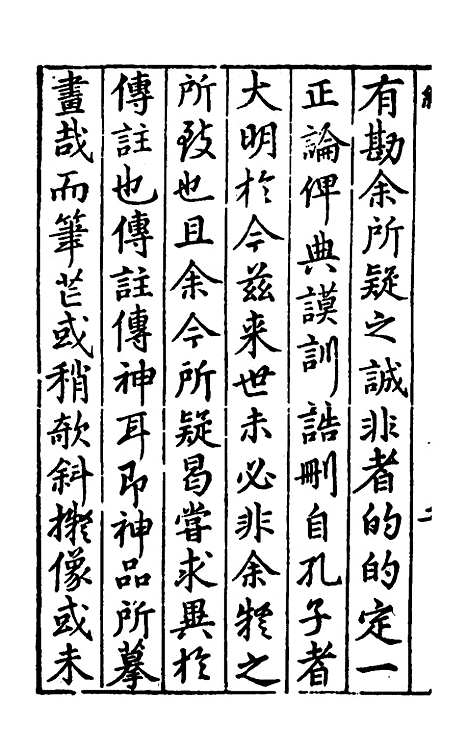 有勘余所疑之誠非者的的定一
正論俾典謨訓誥刪自孔子者
大明於今茲来世未必非余疑之
所致也且余今所疑曷嘗求異於
傳註也傳註傳神耳即神品所摹
畫哉而筆芒或稍欹斜擬像或未